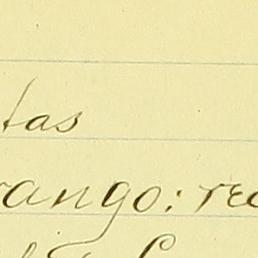 tas
rango: rec